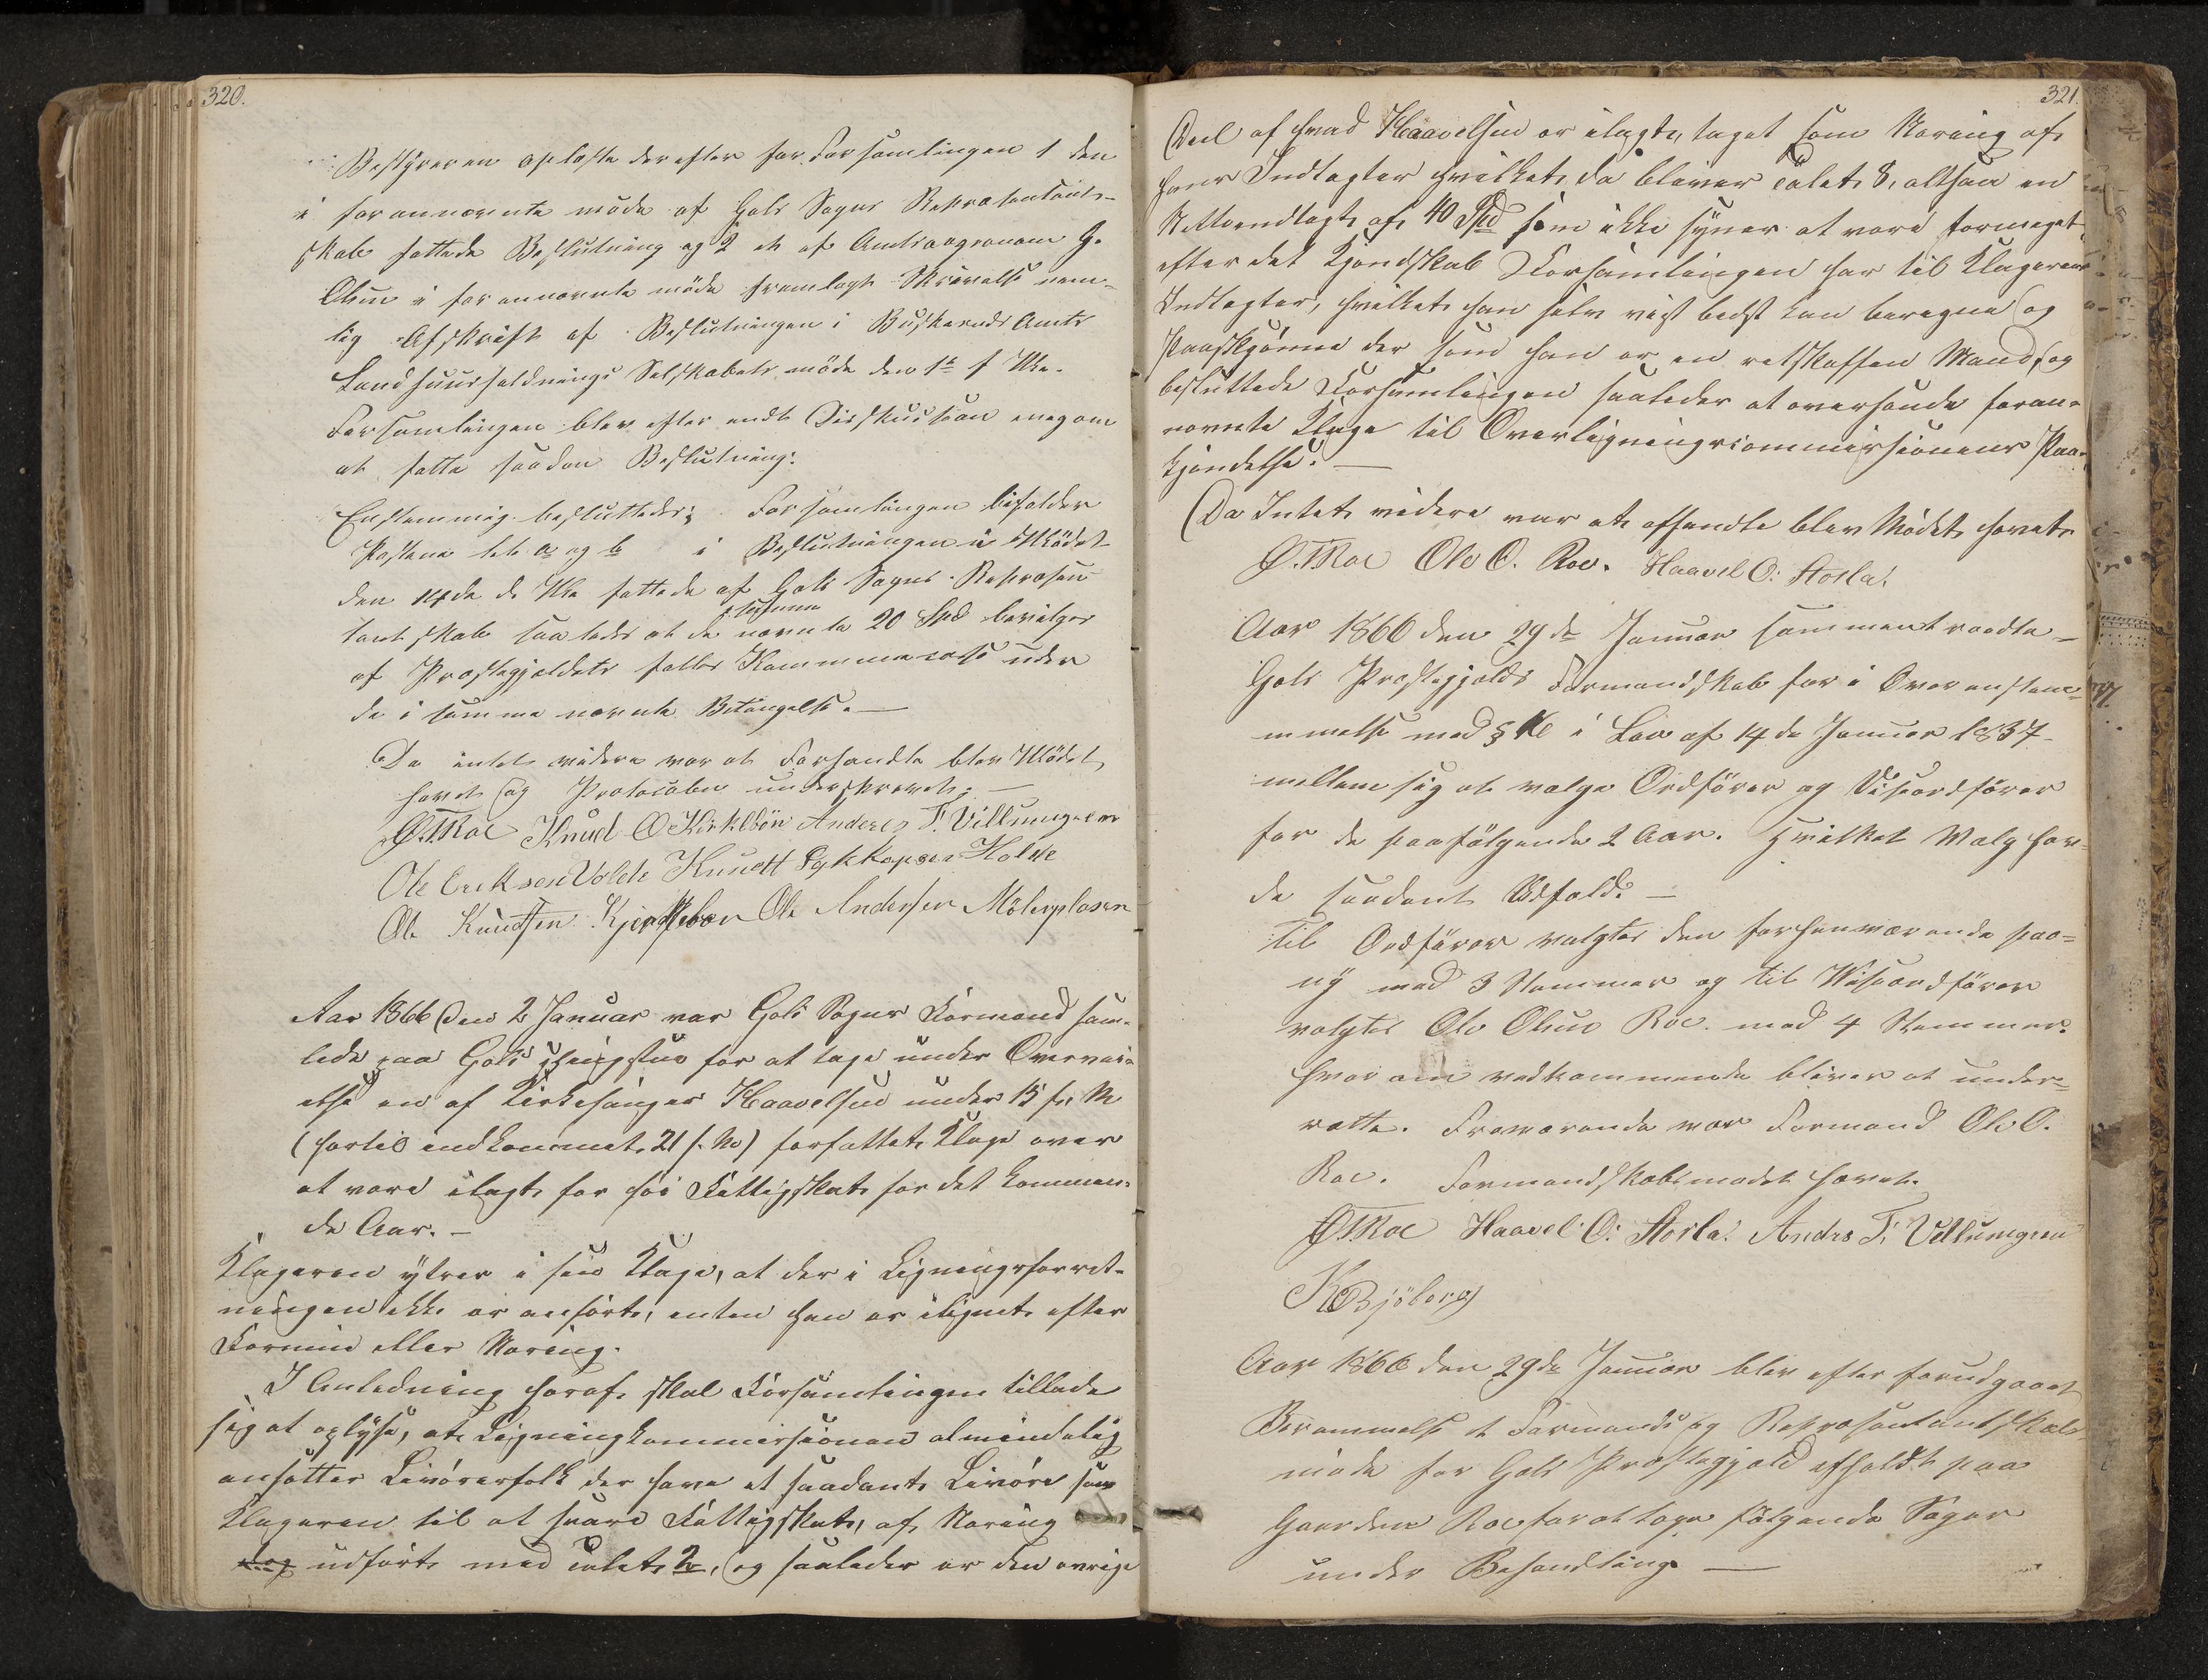 320.
Bestyreren oplæste derefter for Forsamlingen 1 den
i forannævnte møde af Gols Sogns Repræsentant-
skab fattede Beslutning og 2 et af Amtsagronom G.
Olsen i forannævnte møde fremlagt Skrivelse nem-
lig Afskrift af Beslutningen i Buskeruds Amts
Landhuusholdnings Selskabets møde den 1te f. Me.
Forsamlingen blev efter endt Diskussion enig om
at fatte saadan Beslutning:
Enstemmig besluttedes; Forsamlingen bifalder
Posterne litr a og b i Beslutningen i Mödet
den 14de d. Me fattede af Gols Sogns Repræsen-
tantskab saaledes at de nævnte 20 Spd bevilges
af Præstegjeldets fælles Kommunecasse under
de i samme nævnte Betingelse. —
Da intet videre var at Forhandle blev Mödet
hævet og Protocolen underskrevet. —
Ø.T. Roe Knud O Kirkebön Anders F. Villumgren
Ole Eriksen Volde Knudt Sykkopsen Holde
Ole Knudsen Ole Andersen Mölerplasen
Aar 1866 Den 2 Januar var Gols Sogns Formænd sam-
lede paa Gols Thingstue for at tage under Overvei-
else en af Kirkesanger Haavelsen under 15 f. M
(hertil indkommet 21 f. M) forfattet Klage over
at være ilagt for høi Fattigskat for det kommen-
de Aar. —
Klageren ytrer i sin Klage, at der i Ligningsforret-
ningen ikke er anført, enten han er ilignet efter
Formue eller Næring.
I Anledning heraf skal Forsamlingen tillade
sig at oplyse, at Ligningskommissionen almindelig
ansætter Livörerfolk der have et saadant Livöre som
Klageren til at svare Fattigskat, af Næring
dog udført med calet 2, og saaledes er den øvrige
321.
Deel af hvad Haavelsen er ilagt, taget som Næring af
hans Indtægter hvilket da bliver calet 8, altsaa en
Nettoindtægt af 40 Spd som ikke synes at være formeget
efter det Kjendskab Forsamlingen har til Klagerens
Indtægter, hvilket han selv vist bedst kan beregne og
paaskjønne der som han er en retskaffen Mand, og
besluttede Forsamlingen saaledes at oversende foran-
nævnte Klage til Overligningscommissionens Paa-
kjendelse. —
Da Intet videre var at afhandle blev Mödet hævet
Ø.T. Roe Ole O. Roe. Haavel O: Storla.
Aar 1866 den 29de Januar sammentraadte
Gols Præstegjelds Formandskab for i Overenstem-
melse med § 16 i Lov af 14de Januar 1837
mellem sig at vælge Ordförer og Viseordförer
for de paafölgende 2 Aar. Hvilket Valg hav-
de saadant Udfald: —
Til Ordförer valgtes den forhenværende paa-
ny med 3 Stemmer og til Viseordförer
valgtes Ole Olsen Roe med 4 Stemmer.
hvorom vedkommende bliver at under-
rette. Fraværende var Formand Ole O.
Roe. Formandskabsmødet hævet.
Ø.T. Roe Haavel O: Storla. Andrs F. Villumgren
K Bjöberg
Aar 1866 den 29de Januar blev efter forudgaaet
Berammelse et Formands og Repræsentantskabs
møde for Gols Præstegjeld afholdt paa
Gaarden Roe for at tage følgende Sager
under Behandling —